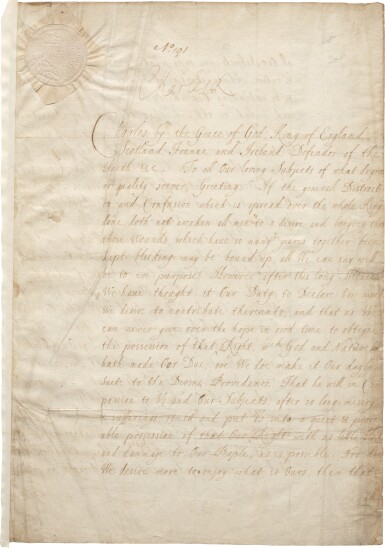 No 191
Charles R
Charles by the Grace of God, King of England
Scotland France and Ireland Defender of the
Faith &c. To all Our loving Subjects of what degree
or quality soever, Greeting. If the general Distracti
on and Confusion which is spread over the whole King
dome doth not awaken all men to a desire and longing that
those Wounds which have so many years together been
kept bleeding may be bound up, all We can say will
be to no purpose. However after this long
We have thought it Our Duty to Declare how much
we desire to contribute thereunto, and that as We
can never give over the hope in good time to obtaine
the possession of that Right, wch God and Nature
hath made Our Due, soe We doe make it Our daily
Suite to the Divine Providence, That he will in Com
passion to Us and Our Subjects after so long misery
& sufferings, remit and put Us into a quiet & peace
able possession of that Our Right with as little blood
and damage to Our People, as is possible. For do
We desire more to enjoy what is Ours, then that